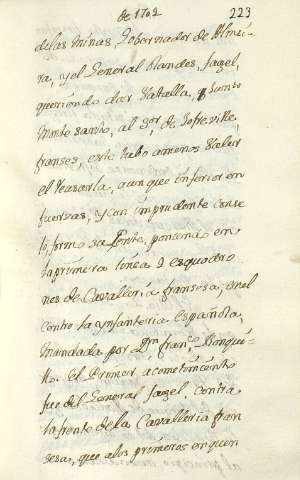 de 1702 223
de las Minas, Governador de Almei-
ra, y el General Olandes, Fagel,
queriendo dar Vatalla, junto
Monte santo, al Sor de Jofreville,
franses, este tubo a menos Valer
el reusarla, aunque inferior en
fuerzas, y con imprudente conse
Jo, formo su frente, poniendo en
la primera linea 2 esquadro-
nes de Cavalleria fransesa, en el
centro la ynfanteria española,
mandada por Dn. franco. Ronqui-
llo. el Primer acometimiento
fue del General Fagel, contra
la frente de la Cavalleria fran
sesa, que a los primeros enquen